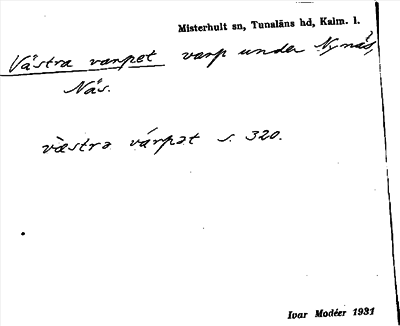 Misterhult sn, Tunaläns hd, Kalm. l.
Västra varpet varp under Nynäs,
Näs.
västra várpət s. 320.
Ivar Modéer 1931